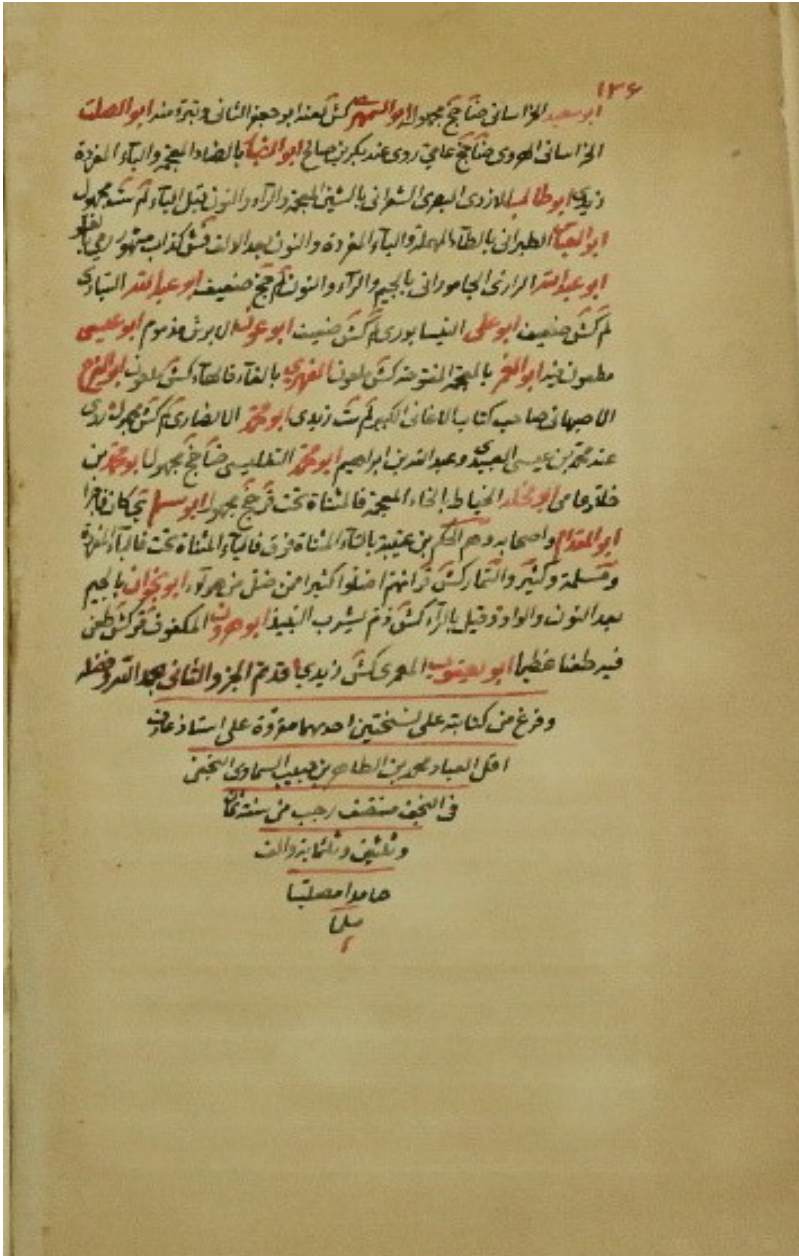 ١٣٦
ابو سعيد الخراساني ضا جخ مجهول ابو السمهري كش لعنه ابو جعفر الثاني وتبرء منه ابو الصلت
الخراساني الهروي ضا جخ عامي روى عنه بكر بن صالح ابو الضبا بالضاد المعجمة والباء المفردة
زيدي ابو طالب الازدي البصري الشعراني بالشين المعجمة والراء والنون قبل الياء لم ست مجهول
ابو العباس الطبراني بالطاء المهملة والباء المفردة والنون بعد الالف كش كذاب مشهور رمي بالغلو
ابو عبدالله الرازي الجاموراني بالجيم والراء والنون لم جخ ضعيف ابو عبدالله السياري
لم كش ضعيف ابو علي النيسابوري لم كش ضعيف ابو عون الابرش مذموم ابو عيسى
مطعون فيه ابو الغمر بالمعجمة المفتوحة كش ملعون الفهري بالفاء فالهاء كش ملعون ابو الفرج
الاصبهاني صاحب كتاب الاغاني الكبير لم ست زيدي ابو محمد الانصاري لم كش مجهول روى
عنه محمد بن عيسى العبيدي وعبدالله بن ابراهيم ابو محمد التفليسي ضا جخ مجهول ابو محمد بن
خلاد عامي ابو مخلد الخياط بالخاء المعجمة فالمثناة تحت قر جخ مجهول ابو مسلم كان فاجرا
ابو المقدام واصحابه وهم الحكم بن عتيبة بالتاء المثناة فوق فالياء المثناة تحت فالباء المفردة
وسلمة وكثير والتمار كش قر انهم اضلوا كثيرا ممن ضل من هولاء ابو نجران بالجيم
بعد النون والواو وقيل بالراء كش ذم لشرب النبيذ ابو هرون المكفوف قر كش طعن
فيه طعنا عظيما ابو يعقوب المعمري كش زيدي قد تم الجزو الثاني بحمد الله وفضله
وفرغ من كتابته على نسختين احدهما مقروة على استاذ عارف
اقل العباد محمد بن الطاهر بن حبيب السماوي النجفي
في النجف منتصف رجب من سنة ثمان
وثلثين وثلثمابة والف
حامدا مصليا
مسلما